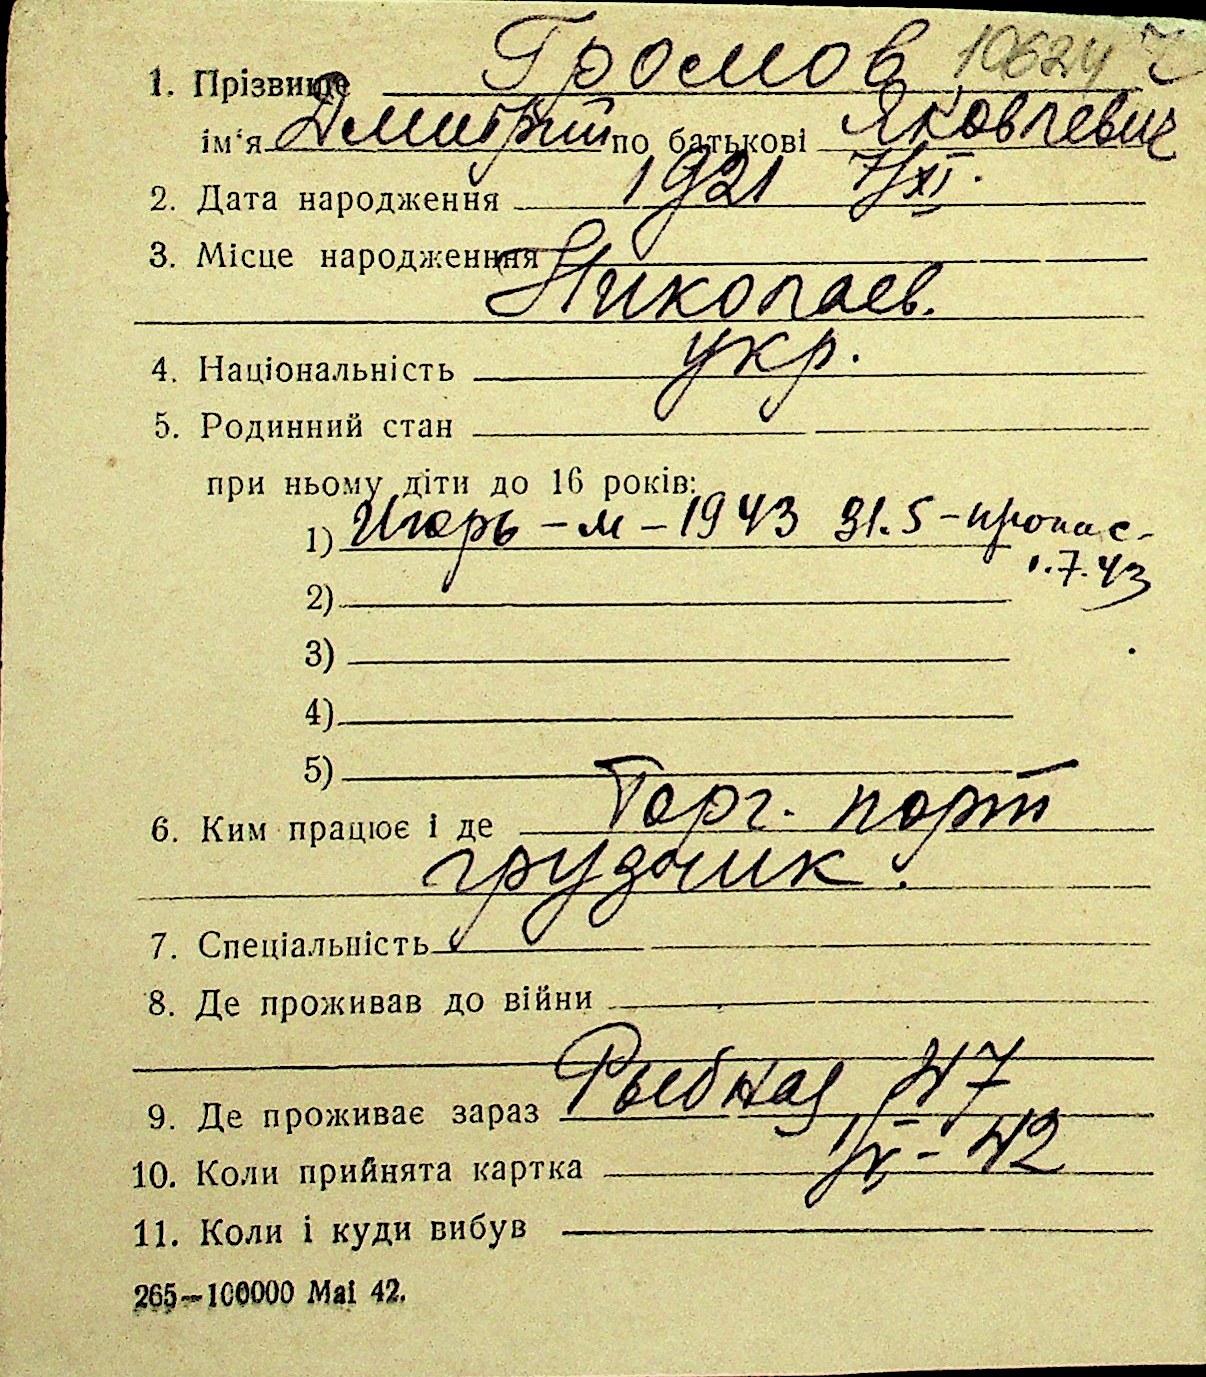 1. Прізвище Громов 10624
ім'я Дмитрий по батькові Яковлевич
2. Дата народження 1921 7/XI.
3. Місце народженння
Николаев.
4. Національність укр.
5. Родинний стан
при ньому діти до 16 років:
1) Игорь – м – 1943 31.5 – пропис.
1.7.43
2)
3)
4)
5)
6. Ким працює і де Торг. порт
грузчик.
7. Спеціальність
8. Де проживав до війни
9. Де проживає зараз Рыбная 47
10. Коли прийнята картка 1/X – 42
11. Коли і куди вибув
265—100000 Mai 42.